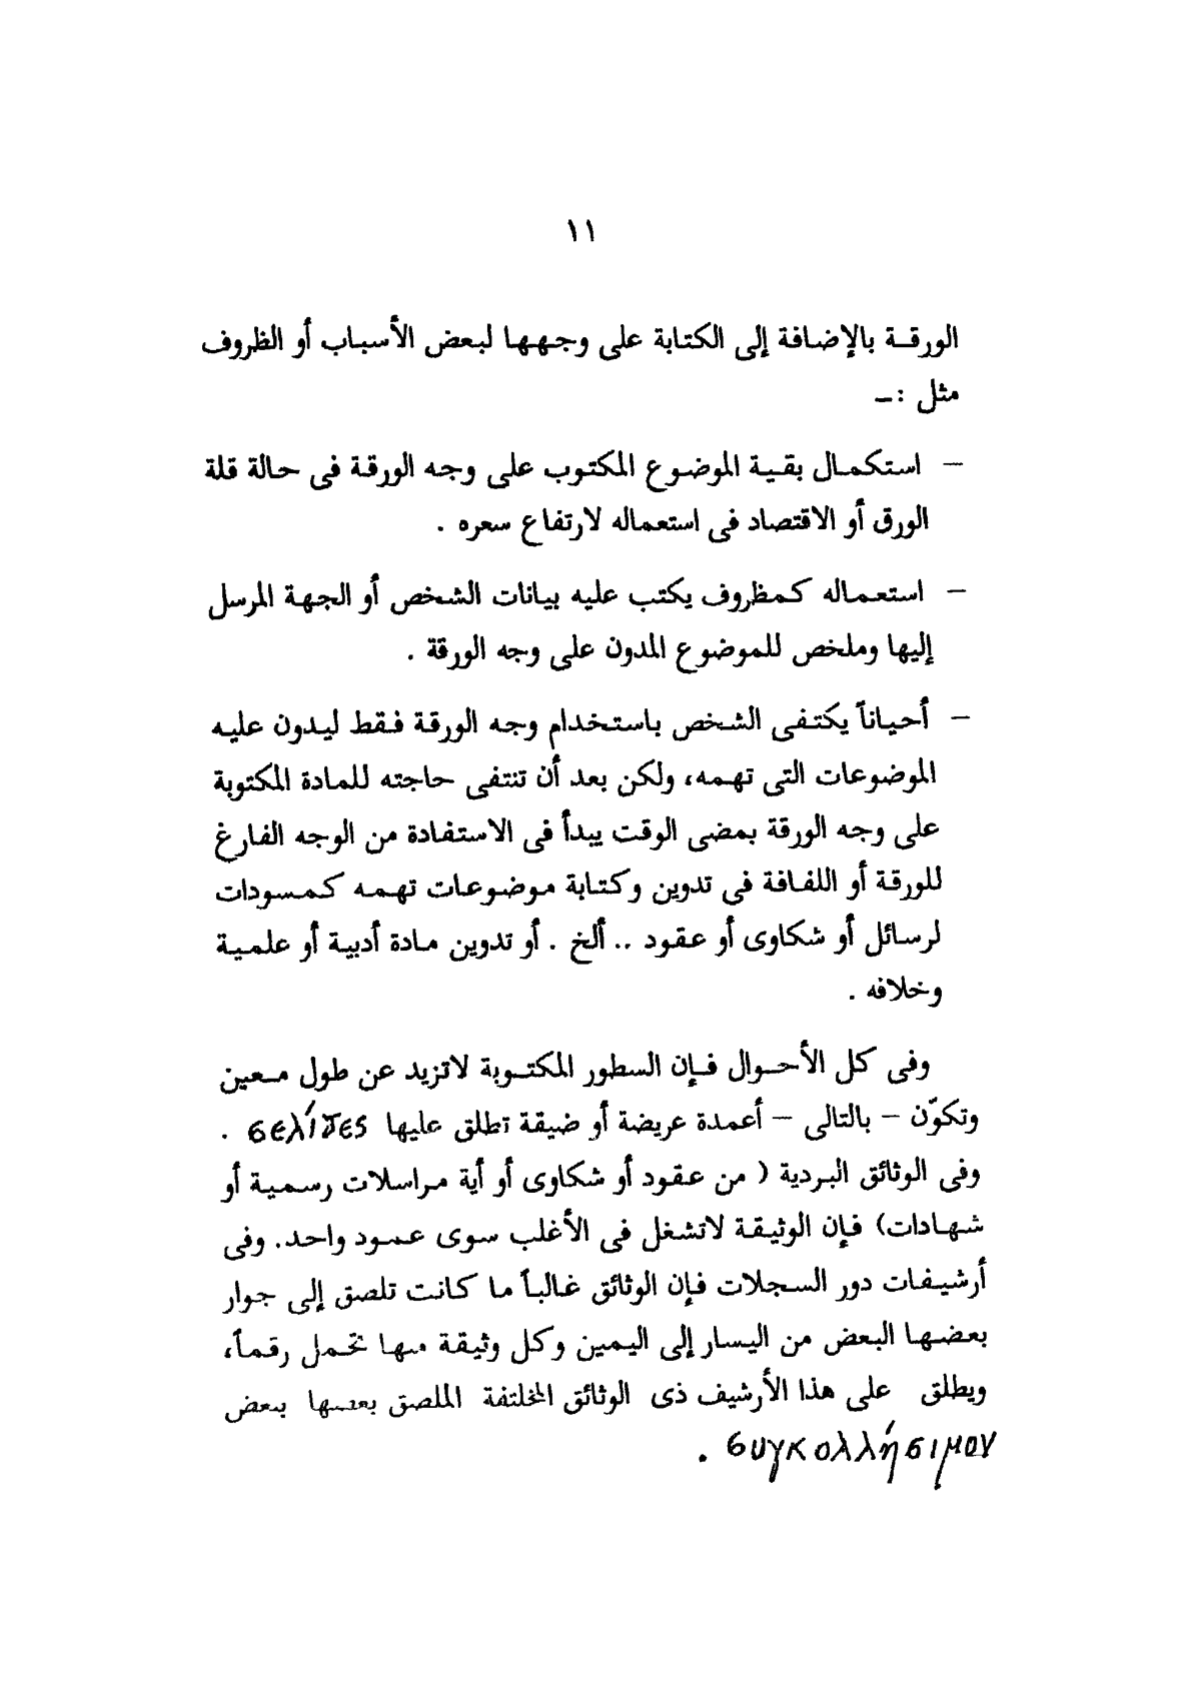 ١١
الورقة بالإضافة إلى الكتابة على وجهها لبعض الأسباب أو الظروف
مثل :ـ
– استكمال بقية الموضوع المكتوب على وجه الورقة فى حالة قلة
الورق أو الاقتصاد فى استعماله لارتفاع سعره .
– استعماله كمظروف يكتب عليه بيانات الشخص أو الجهة المرسل
إليها وملخص للموضوع المدون على وجه الورقة .
– أحياناً يكتفى الشخص باستخدام وجه الورقة فقط ليدون عليه
الموضوعات التى تهمه، ولكن بعد أن تنتفى حاجته للمادة المكتوبة
على وجه الورقة بمضى الوقت يبدأ فى الاستفادة من الوجه الفارغ
للورقة أو اللفافة فى تدوين وكتابة موضوعات تهمه كمسودات
لرسائل أو شكاوى أو عقود .. ألخ . أو تدوين مادة أدبية أو علمية
وخلافه .
وفى كل الأحوال فإن السطور المكتوبة لاتزيد عن طول معين
وتكوّن – بالتالى – أعمدة عريضة أو ضيقة تطلق عليها σελίδες .
وفى الوثائق البردية ( من عقود أو شكاوى أو أية مراسلات رسمية أو
شهادات) فإن الوثيقة لاتشغل فى الأغلب سوى عمود واحد. وفى
أرشيفات دور السجلات فإن الوثائق غالباً ما كانت تلصق إلى جوار
بعضها البعض من اليسار إلى اليمين وكل وثيقة منها تحمل رقماً،
ويطلق على هذا الأرشيف ذى الوثائق المختلفة الملصق بعضها ببعض
συγκολλήσιμον .